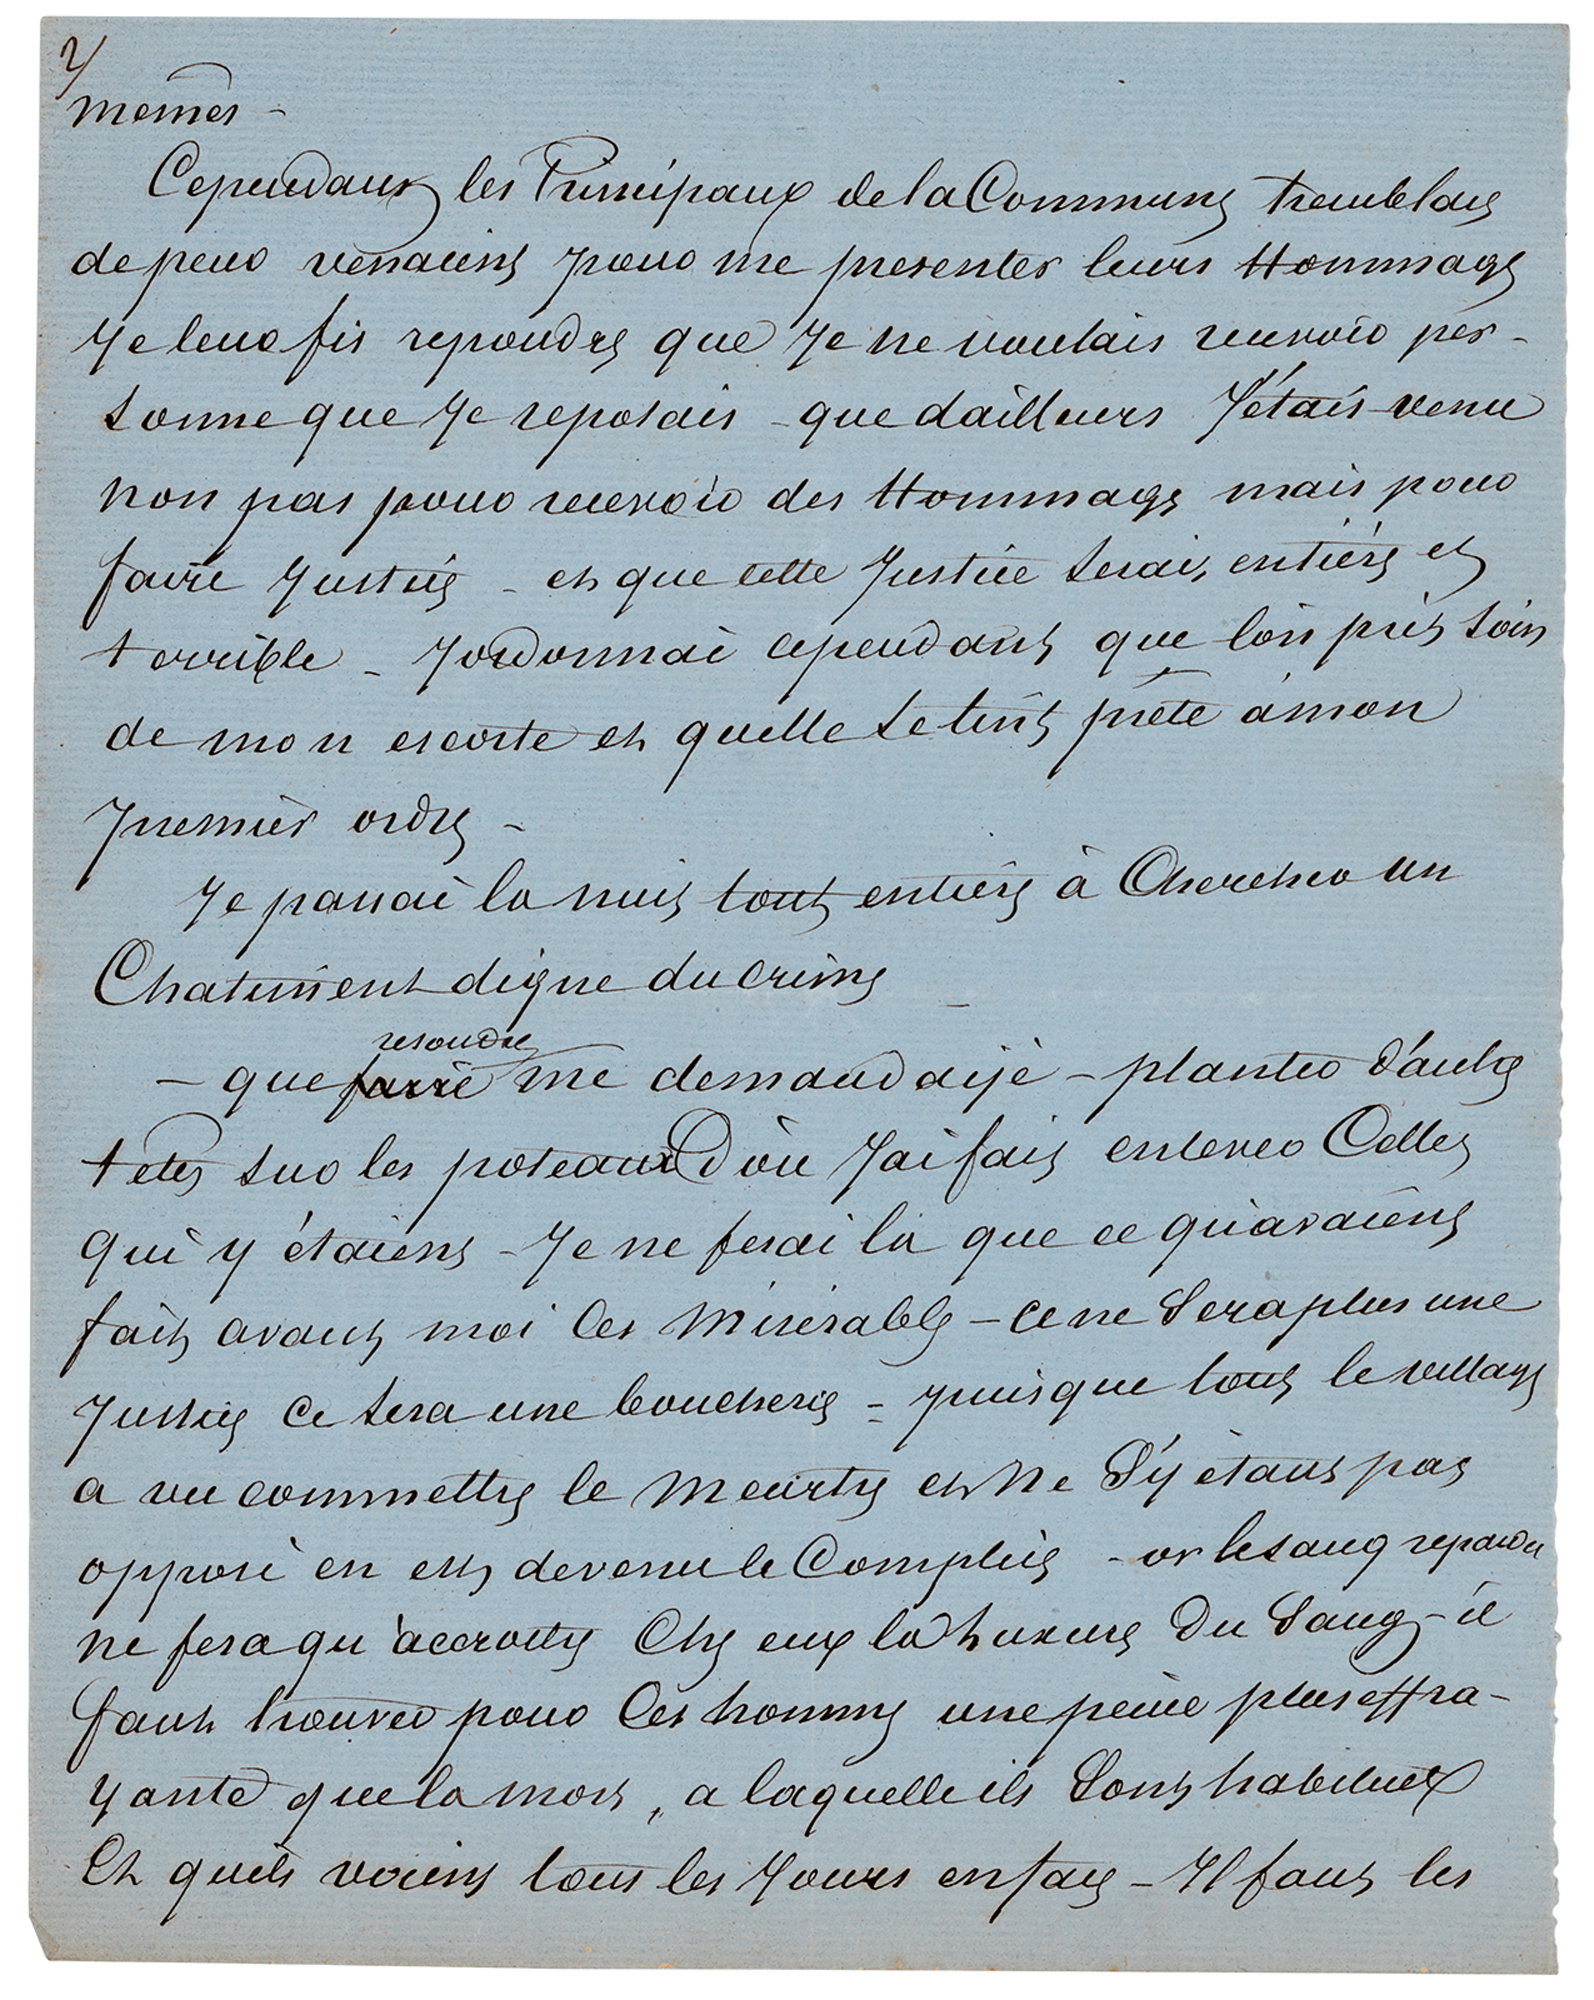 2/
memes -
Cependant les Principaux de la Commune tremblant
de peur venaient pour me presenter leurs Hommage
Je leur fis repondre que Je ne voulais recevoir per-
sonne que Je reposais - que dailleurs J'étais venu
non pas pour recevoir des Hommage mais pour
faire Justice - et que cette Justice serait entière et
terrible - Jordonnai cependant que lon prit soin
de mon escorte et quelle se tint prête à mon
premier ordre -
Je passai la nuit tout entière à Chercher un
Chatiment digne du crime -
resoudre
- que faire me demandaije - planter d'autre
tetes sur les poteaux Doù Jai fait enlever Celles
qui y étaient - Je ne ferai là que ce quavaient
fait avant moi les Misérable - ce ne Sera plus une
Justice Ce sera une boucherie - puisque tout le village
a vu commettre le Meurtre et Ne S'y étant pas
opposé en est devenu le Complice - or le sang repandu
ne fera qu'accroitre Chez eux la Luxure Du Sang - il
faut trouver pour Ces homme une peine plus effra-
yante que la mort, a laquelle ils Sont habituet
Et quils voient tous les Jours en face - Il faut les